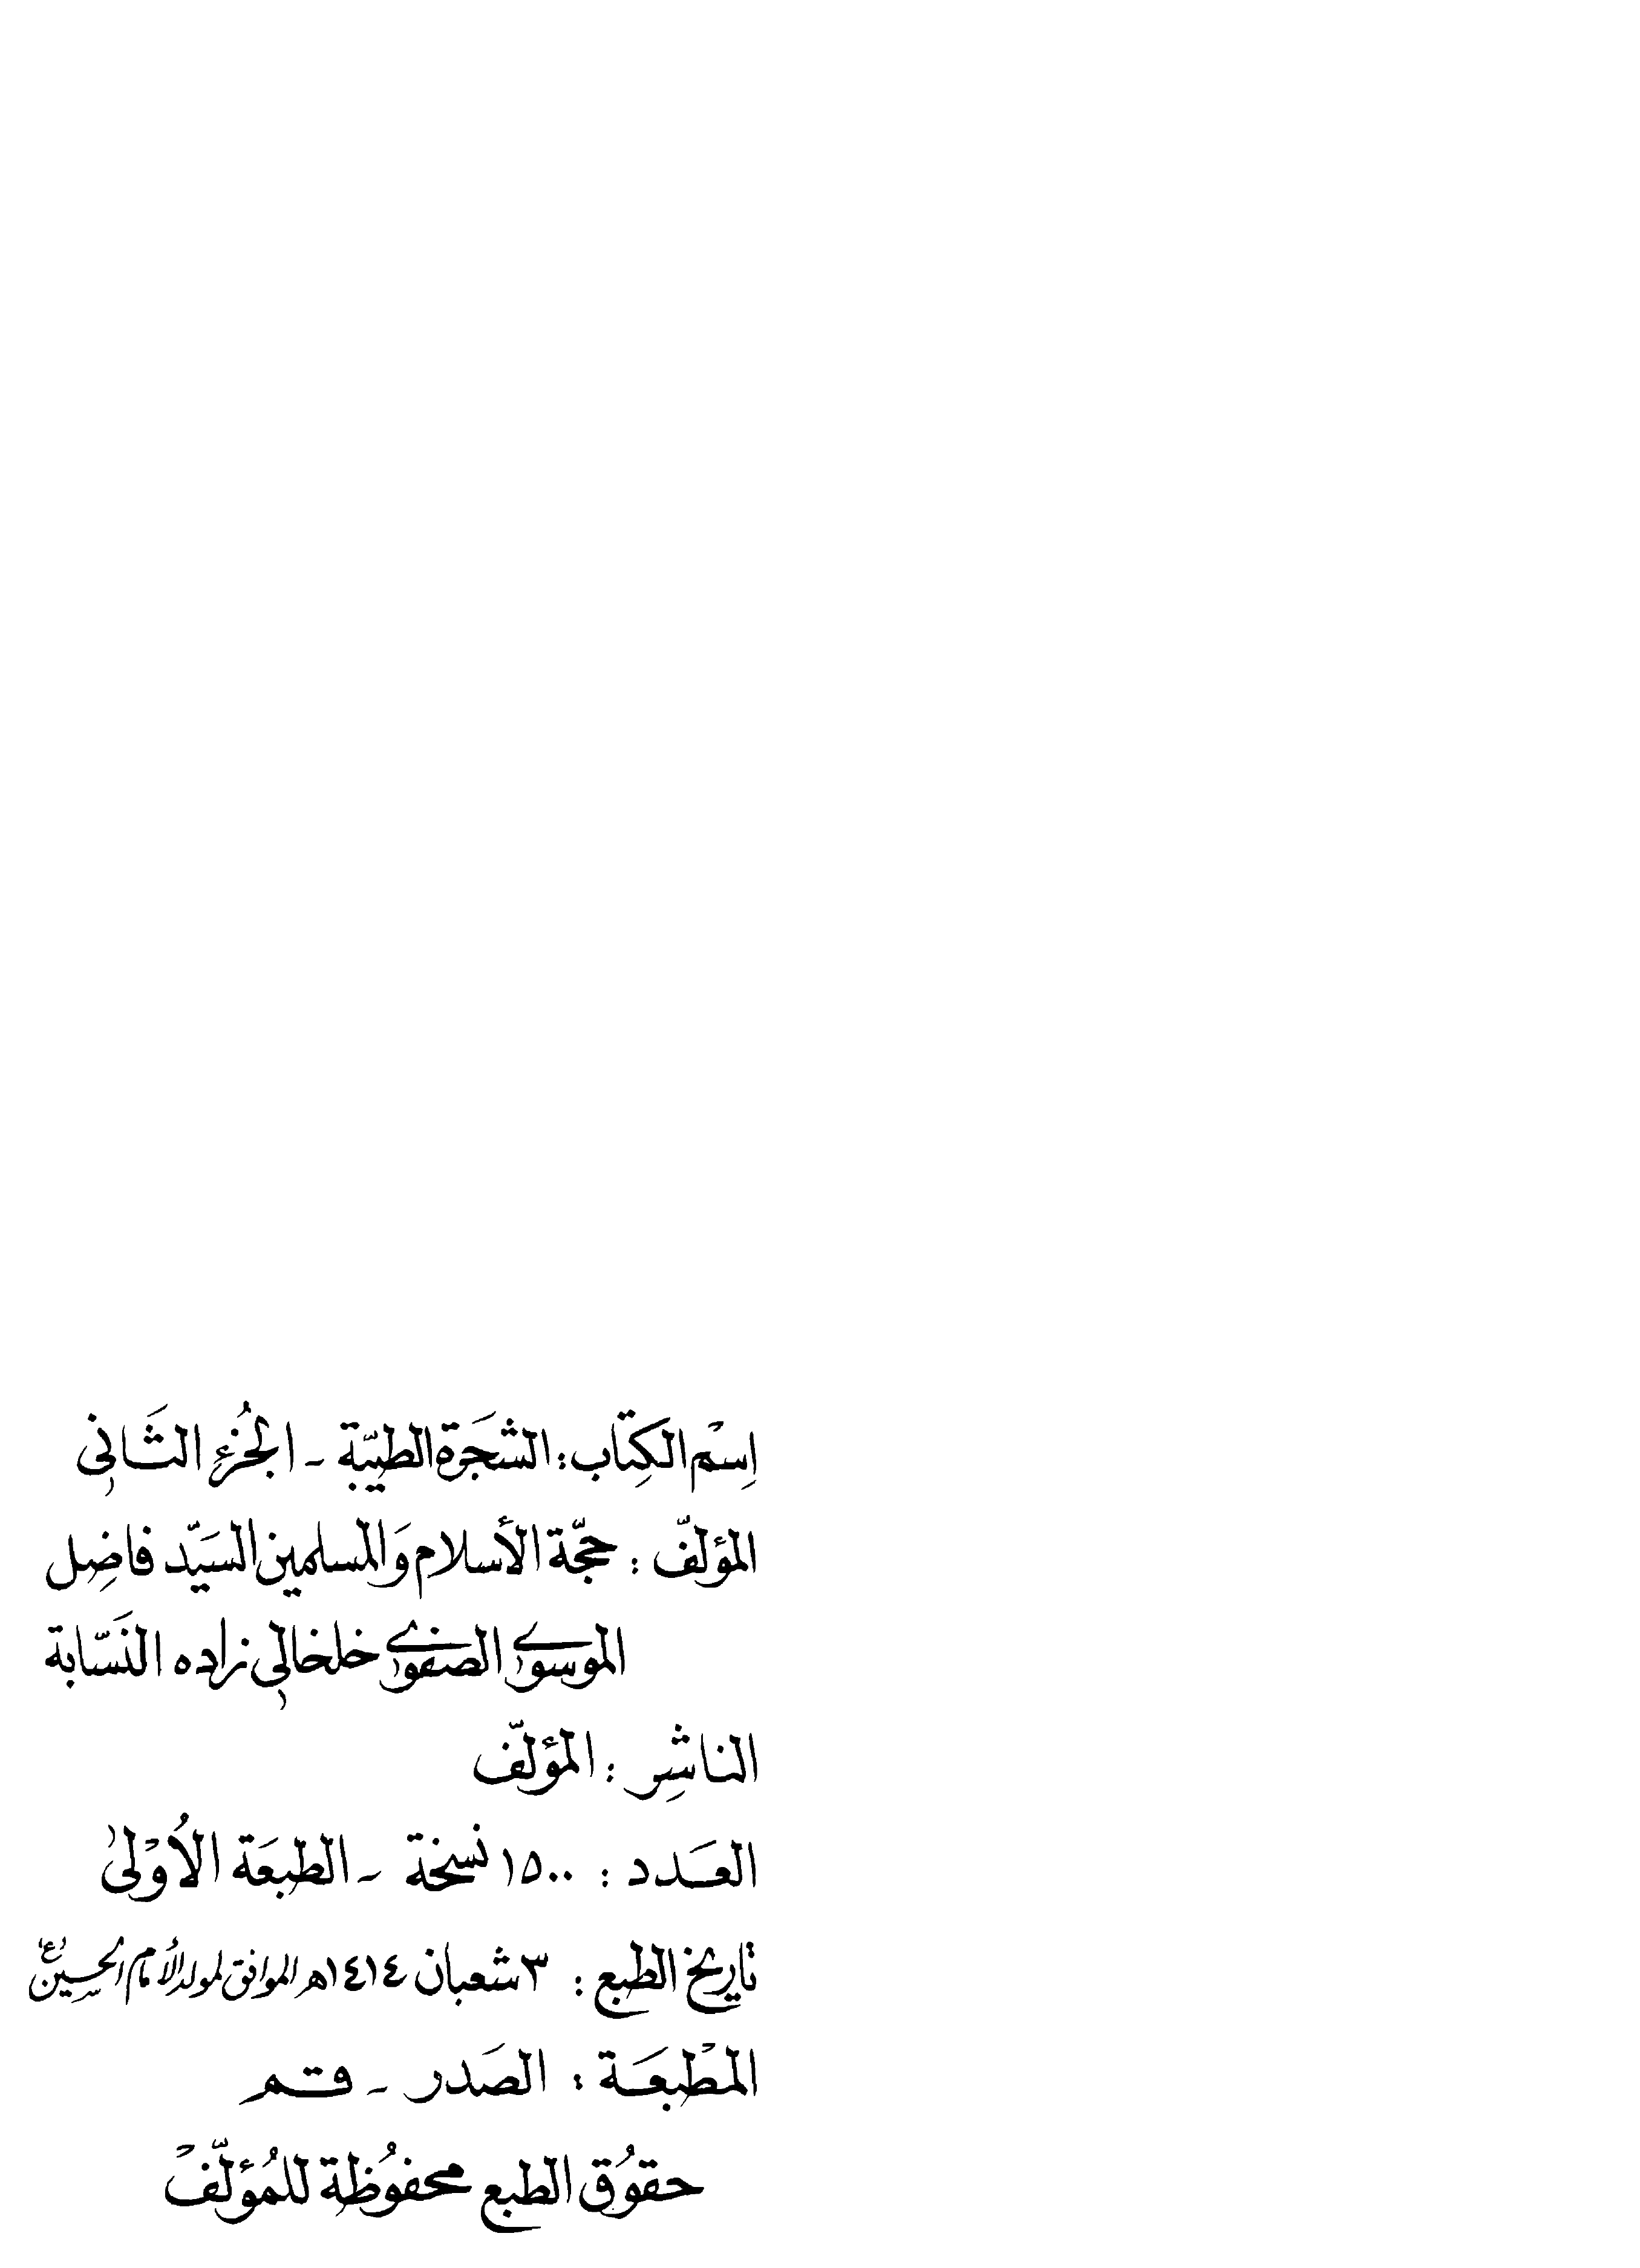 اِسْم الكِتاب : الشجَرة الطيّبة - الجُزءِ الثَاني
المؤلفّ : حجّة الأسلام وَالمسلمين السَيّد فاضِل
الموسوي الصفوي خلخالي زاده النَسّابة
الناشِر : المؤلّف
العَدد : ١٥٠٠ نسخة - الطبعَة الاُوْلىٰ
تاريخ الطبع : ٣ شعبان ١٤١٤هـ الموافق لمولد الأمام الحسين ع
المطْبعَة : الصَدر - قم
حقوُق الطبع محفوُظة للمُؤلّفْ